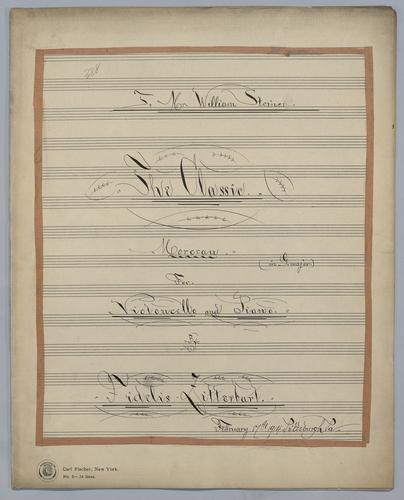 388
To Mr. William Steiner.
The Classic.
Morceau.
(in G major)
For.
Violoncello and Piano.
By.
Fidelis Zitterbart.
February 17th 1914 Pittsburgh, Pa.
Carl Fischer, New York.